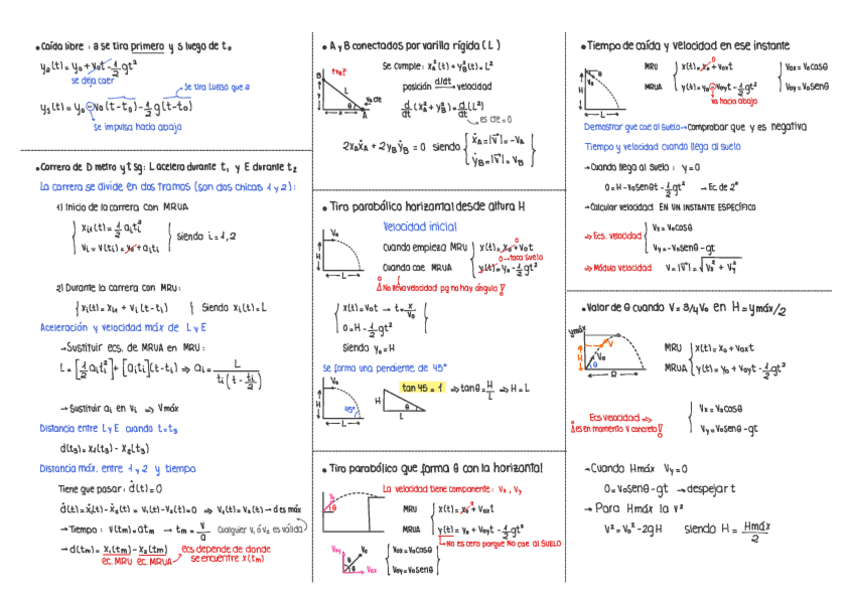 • Caída libre : a se tira primero y s luego de t₀
yₐ(t) = y₀ + v₀t - 1/2 gt²
se deja caer
se tira luego que a
yₛ(t) = y₀ - v₀(t - t₀) - 1/2 g(t - t₀)
se impulsa hacia abajo
• Carrera de D metro y t sg: L acelera durante t₁ y E durante t₂
La carrera se divide en dos tramos (son dos chicas 1 y 2):
1) Inicio de la carrera con MRUA
x₁ᵢ(t) = 1/2 aᵢtᵢ²
vᵢ = v(tᵢ) = v₀ + aᵢtᵢ
siendo i = 1,2
2) Durante la carrera con MRU:
xᵢ(t) = x₁ᵢ + vᵢ (t - tᵢ)
Siendo xᵢ(t) = L
Aceleración y velocidad máx de L y E
→ Sustituir ecs. de MRUA en MRU:
L = [1/2 aᵢtᵢ²] + [aᵢtᵢ](t - tᵢ) ⇒ aᵢ = L / tᵢ(t - tᵢ/2)
→ Sustituir aᵢ en vᵢ ⇒ Vmáx
Distancia entre L y E cuando t = t₃
d(t₃) = x₁(t₃) - x₂(t₃)
Distancia máx. entre 1 y 2 y tiempo
Tiene que pasar: ḋ(t) = 0
ḋ(t) = ẋ₁(t) - ẋ₂(t) = v₁(t) - v₂(t) = 0 ⇒ v₁(t) = v₂(t) → d es máx
→ Tiempo : v(tm) = atm → tm = v/a
Cualquier v₁ ó v₂ es válida
→ d(tm) = x₁(tm) - x₂(tm)
ec. MRU ec. MRUA
ecs depende de donde
se encuentre x(tm)
• A y B conectados por varilla rígida (L)
B
y
θ
A
x
Se cumple: xₐ²(t) + y_B²(t) = L²
posición d/dt → velocidad
d/dt (xₐ² + y_B²) = d/dt (L²)
es cte = 0
2xₐẋₐ + 2y_Bẏ_B = 0 siendo
ẋₐ = |v⃗| = -vₐ
ẏ_B = |v⃗| = v_B
• Tiro parabólico horizontal desde altura H
v₀
H
L
Velocidad inicial
Cuando empieza MRU x(t) = x₀ + v₀t
0 → toca suelo
Cuando cae MRUA y(t) = y₀ - 1/2 gt²
¡No lleva velocidad pq no hay ángulo!
x(t) = v₀t → t = x/v₀
0 = H - 1/2 gt²
siendo y₀ = H
se forma una pendiente de 45º
v₀
H
45º
L
H
θ
L
tan 45 = 1 ⇒ tanθ = H/L ⇒ H = L
• Tiro parabólico que forma θ con la horizontal
La velocidad tiene componente : vₓ , v_y
MRU x(t) = x₀ + v₀ₓt
MRUA y(t) = y₀ + v₀yt - 1/2 gt²
No es cero porque NO cae al SUELO
v₀y v₀
θ
v₀ₓ
v₀ₓ = v₀cosθ
v₀y = v₀senθ
• Tiempo de caída y velocidad en ese instante
θ
v₀
H
L
MRU x(t) = x₀ + v₀ₓt
MRUA y(t) = y₀ - v₀yt - 1/2 gt²
va hacia abajo
v₀ₓ = v₀cosθ
v₀y = v₀senθ
Demostrar que cae al suelo → Comprobar que y es negativa
Tiempo y velocidad cuando llega al suelo
→ Cuando llega al suelo : y = 0
0 = H - v₀senθt - 1/2 gt² → Ec de 2º
→ Calcular velocidad EN UN INSTANTE ESPECÍFICO
⇒ Ecs. velocidad
vₓ = v₀cosθ
v_y = -v₀senθ - gt
⇒ Módulo velocidad v = |v⃗| = √(vₓ² + v_y²)
• Valor de θ cuando v = 3/4v₀ en H = ymáx/2
ymáx
v
H
v₀
θ
R
MRU x(t) = x₀ + v₀ₓt
MRUA y(t) = y₀ + v₀yt - 1/2 gt²
Ecs velocidad ⇒
¡es en momento v concreto!
vₓ = v₀cosθ
v_y = v₀senθ - gt
→ Cuando Hmáx v_y = 0
0 = v₀senθ - gt → despejar t
→ Para Hmáx la v²
v² = v₀² - 2gH siendo H = Hmáx/2